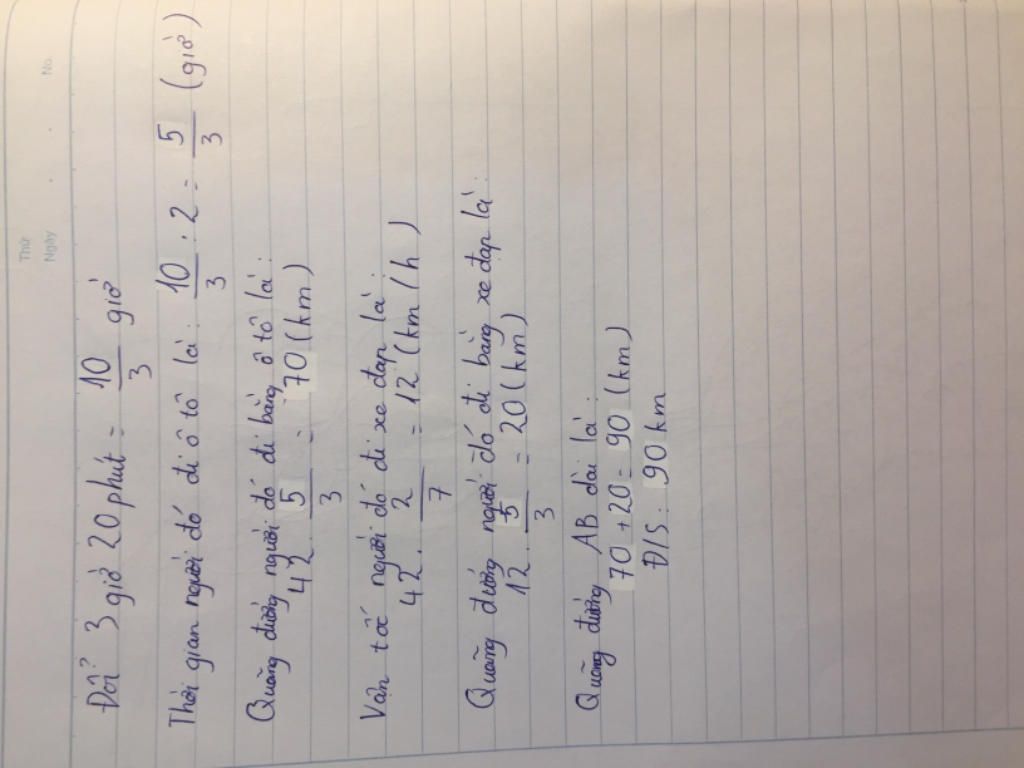 Thứ
Ngày . . No.
Đổi 3 giờ 20 phút = 10/3 giờ
Thời gian người đó đi ô tô là: 10/3 : 2 = 5/3 (giờ)
Quãng đường người đó đi bằng ô tô là:
42 . 5/3 = 70 (km)
Vận tốc người đó đi xe đạp là:
42 . 2/7 = 12 (km/h)
Quãng đường người đó đi bằng xe đạp là:
12 . 5/3 = 20 (km)
Quãng đường AB dài là:
70 + 20 = 90 (km)
Đ/S: 90 km